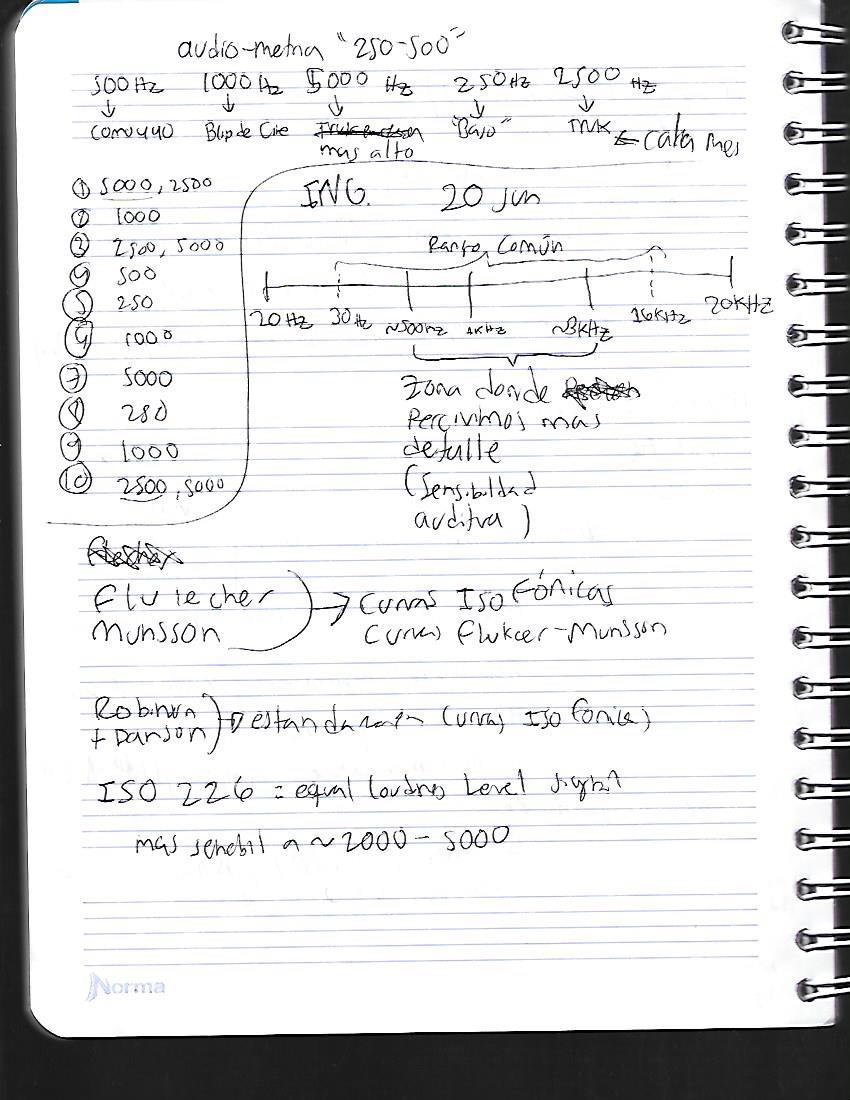 audio-metria "250-500"
500Hz 1000Hz 5000 Hz 250Hz 2500 Hz
↓ ↓ ↓ ↓ ↓
Como yyo Blip de Cine "Bajo" TNK ← cada mes
mas alto
① 5000, 2500
② 1000
③ 2500, 5000
④ 500
⑤ 250
⑥ 1000
⑦ 5000
⑧ 250
⑨ 1000
⑩ 2500, 5000
ING. 20 jun
Rango Común
20Hz 30Hz ~500Hz 1KHz ~3KHz 16KHz 20KHz
Zona donde
Percivimos mas
detalle
(sensibilidad
auditiva)
Flutecher
Munsson
→ Curvas ISO fónicas
Curvas Flukcer-Munsson
Robinson
+ Danson
→ Curvas ISO fónicas
ISO 226 = equal loudnes Level
mas sensbil a ~2000-5000
Norma